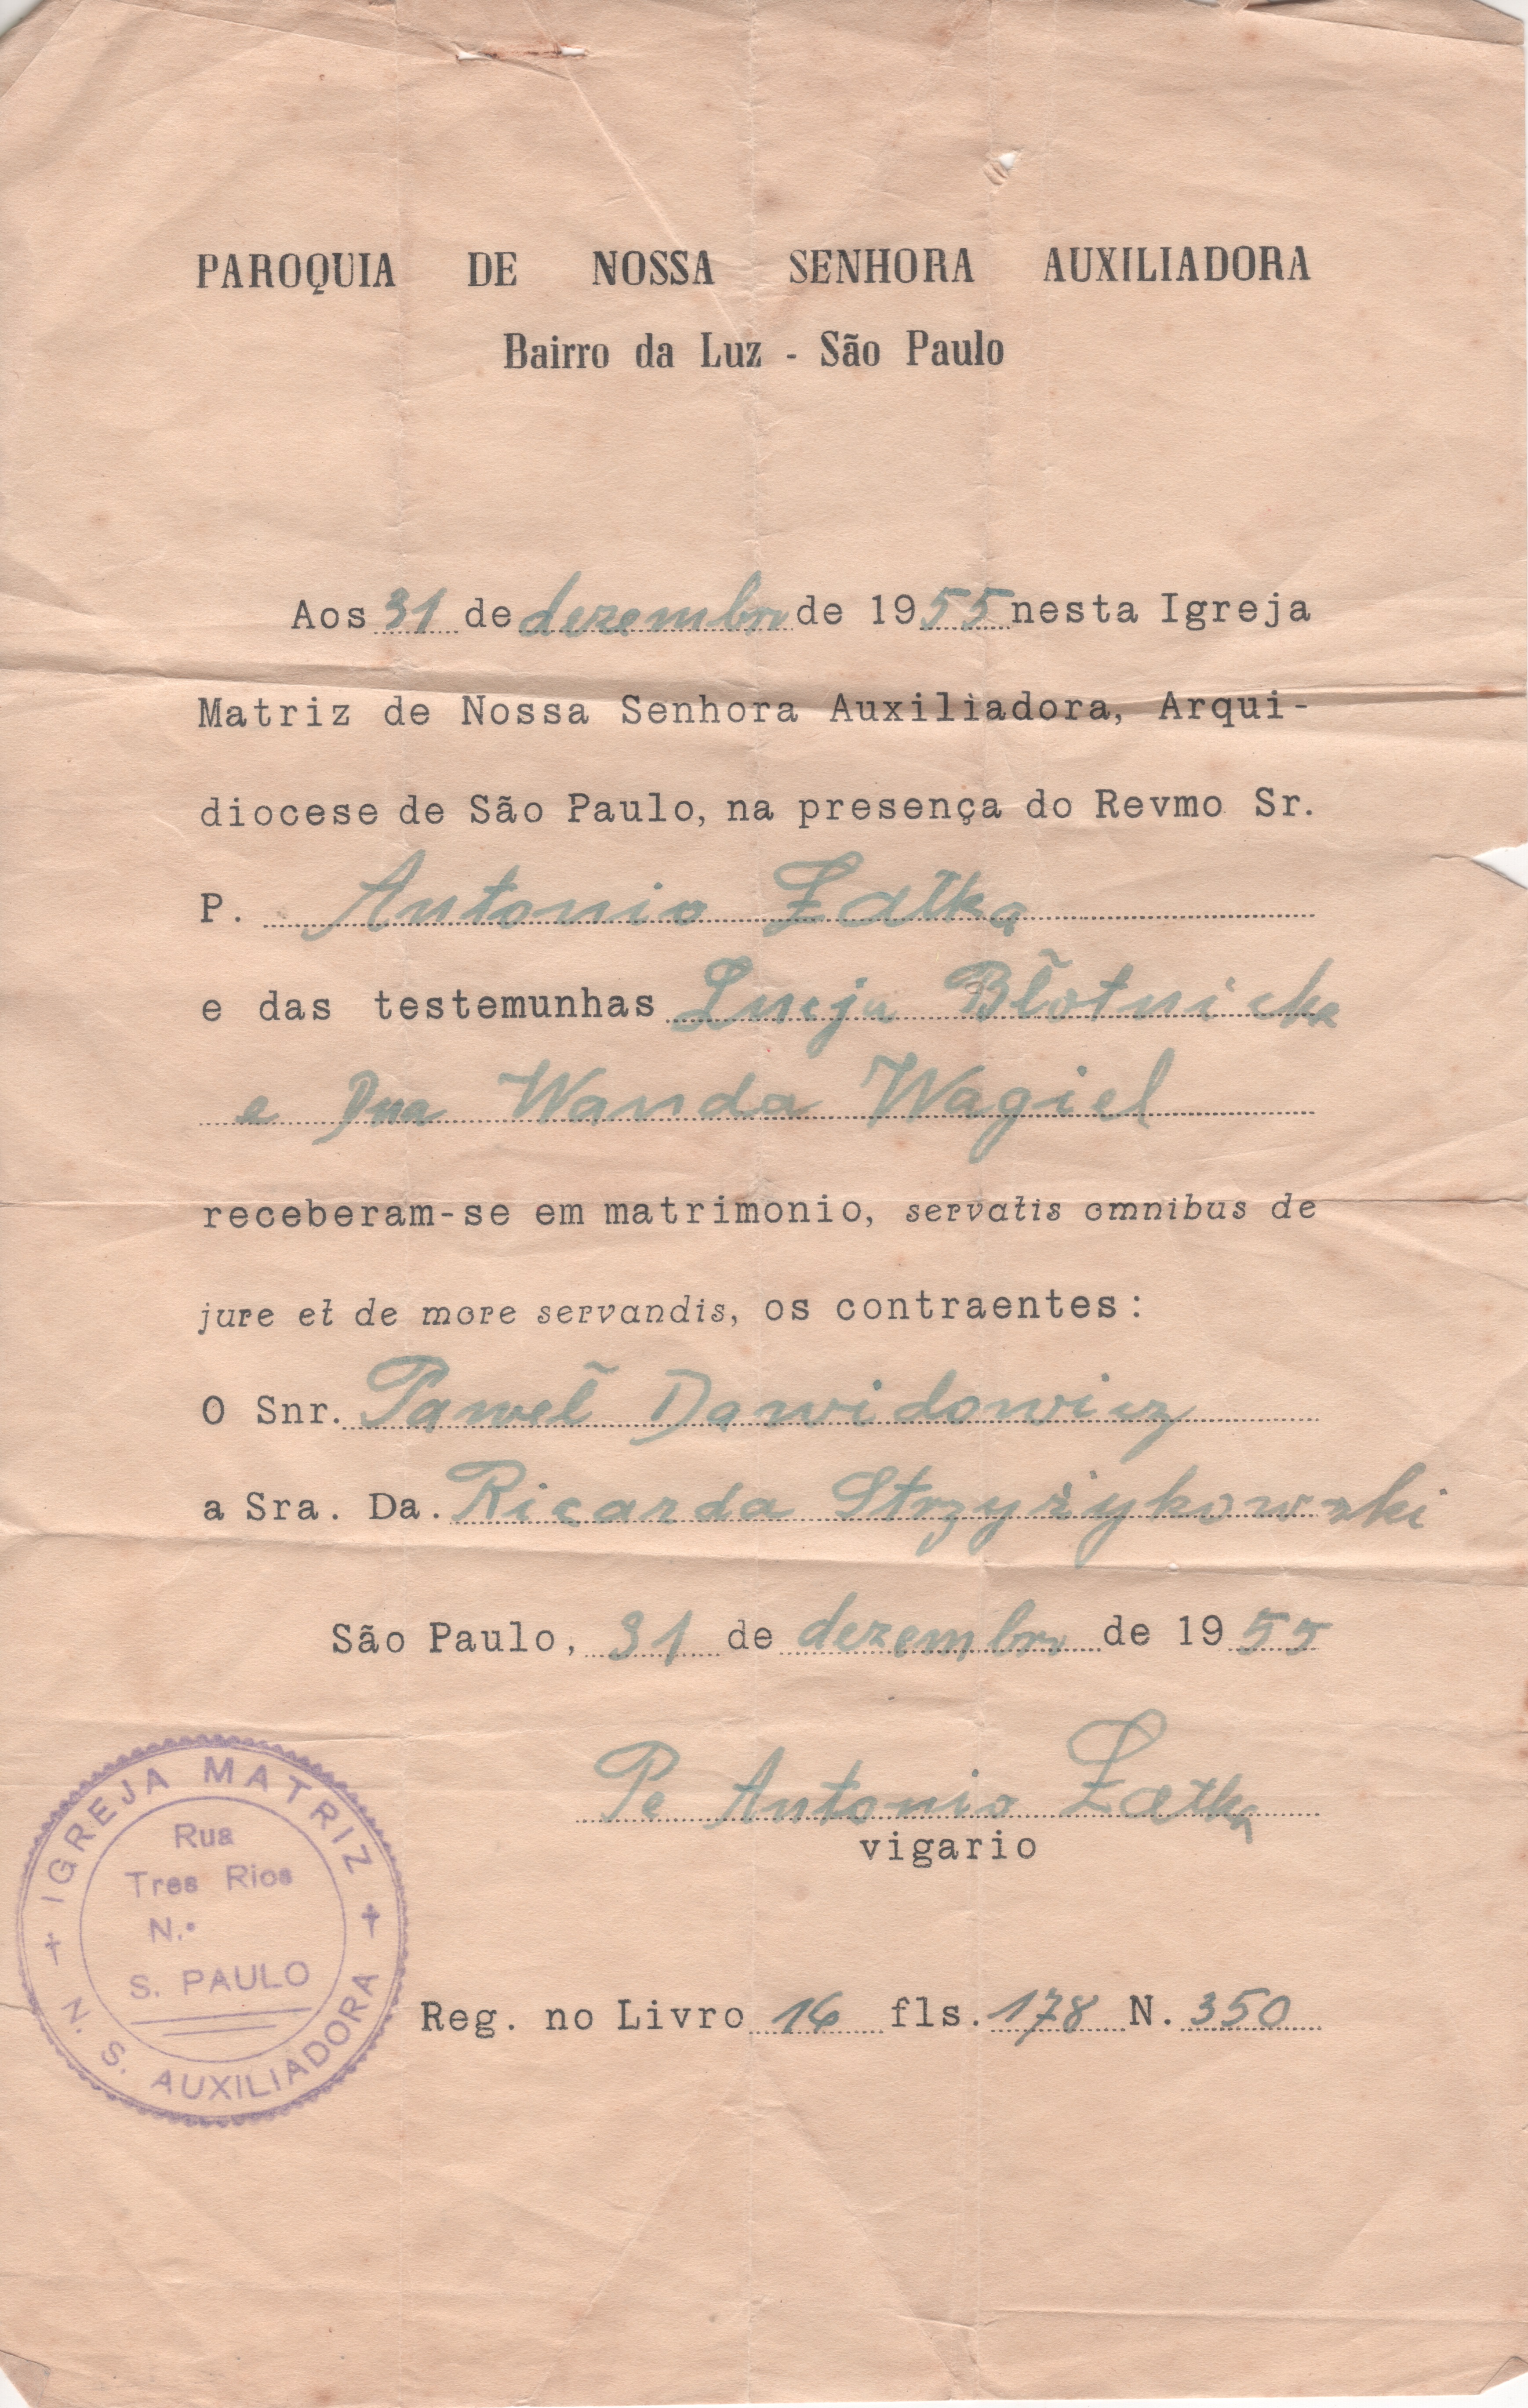 PAROQUIA DE NOSSA SENHORA AUXILIADORA
Bairro da Luz - São Paulo
Aos 31 de dezembro de 1955 nesta Igreja
Matriz de Nossa Senhora Auxiliadora, Arqui-
diocese de São Paulo, na presença do Revmo Sr.
P. Antonio Łatka
e das testemunhas Lucja Błotnicka
e Dna Wanda Wagiel
receberam-se em matrimonio, servatis omnibus de
jure et de more servandis, os contraentes:
O Snr. Paweł Dawidowicz
a Sra. Da. Ricarda Strzyżykowski
São Paulo, 31 de dezembro de 1955
Pe Antonio Łatka
vigario
Reg. no Livro 16 fls. 178 N. 350
IGREJA MATRIZ
Rua
Tres Rios
N.º
S. PAULO
N. S. AUXILIADORA